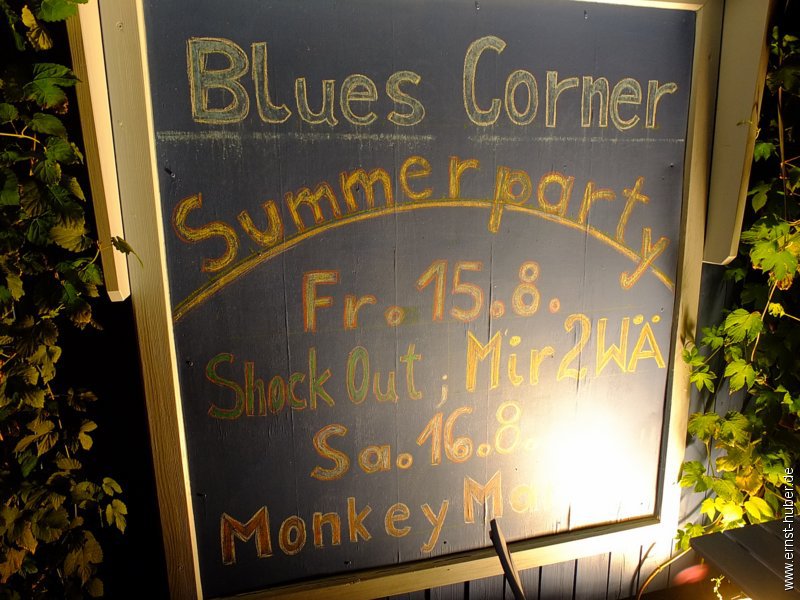 Blues Corner
Summerparty
Fr. 15.8.
Shock Out, Mir2WÄ
Sa. 16.8.
Monkey
www.ernst-huber.de